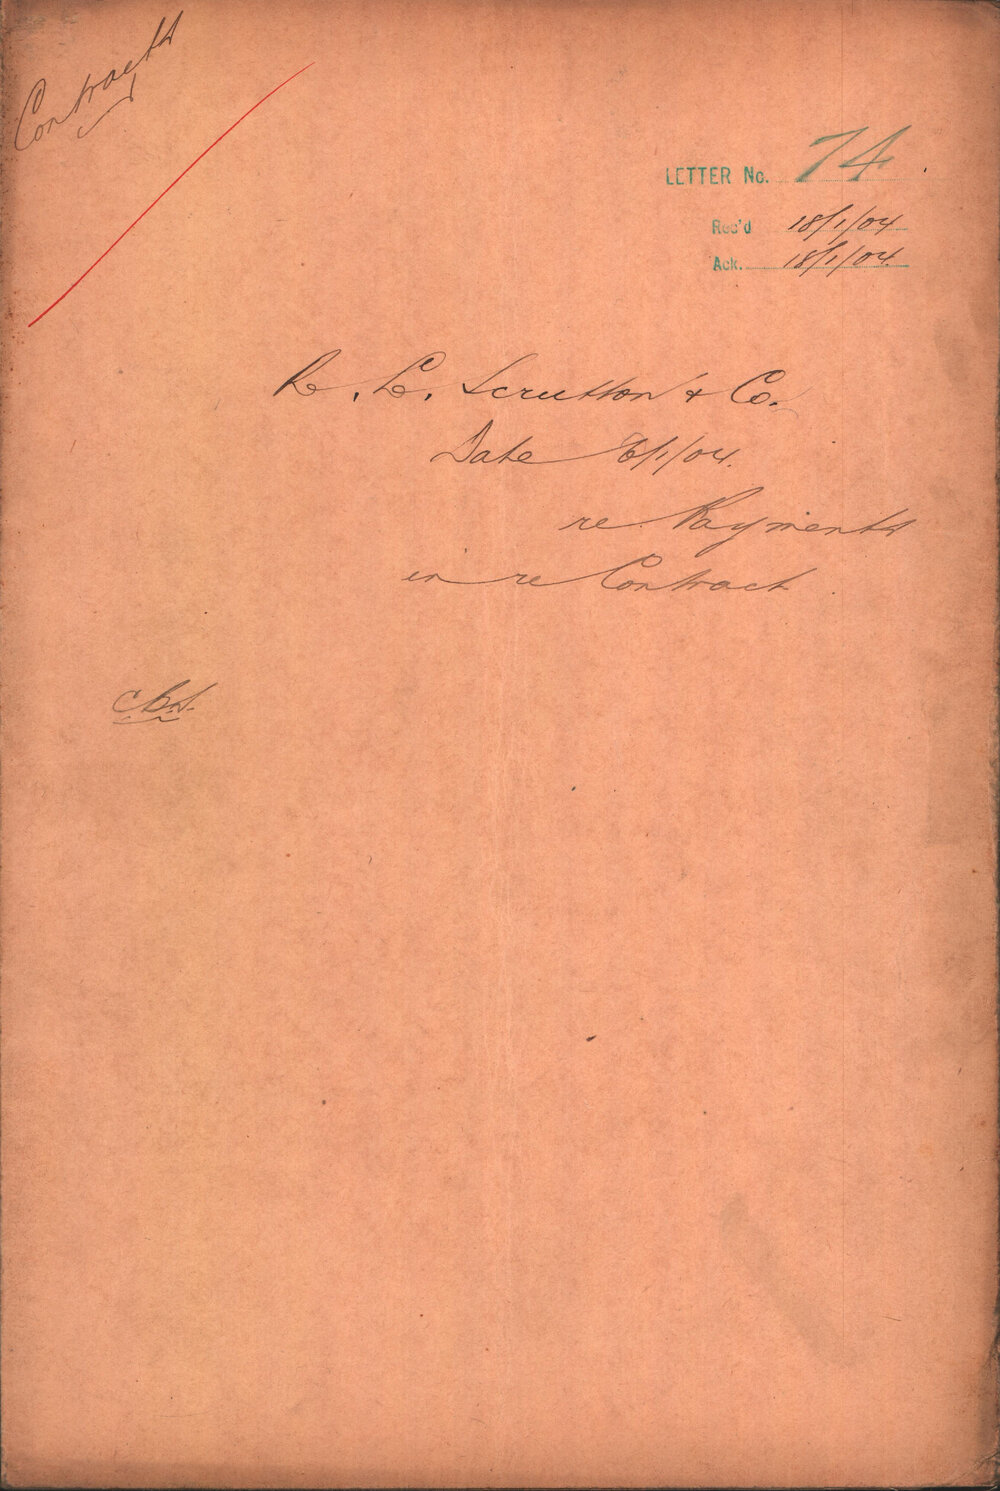 Contracts
LETTER No. 74
Rec'd 18/1/04
Ack. 18/1/04.
R. L. Scrutton & Co.
Date 6/1/04.
re Payments
in re Contract